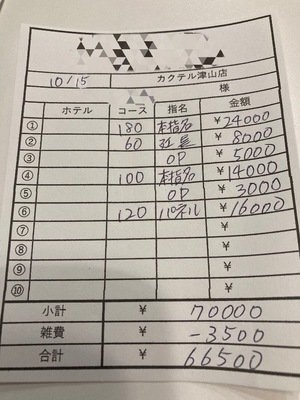 10/15 カクテル津山店
様
ホテル コース 指名 金額
① 180 本指名 ¥24000
② 60 延長 ¥8000
③ OP ¥5000
④ 100 本指名 ¥14000
⑤ OP ¥3000
⑥ 120 パネル ¥16000
⑦ ¥
⑧ ¥
⑨ ¥
⑩ ¥
小計 ¥ 70000
雑費 ¥ -3500
合計 ¥ 66500